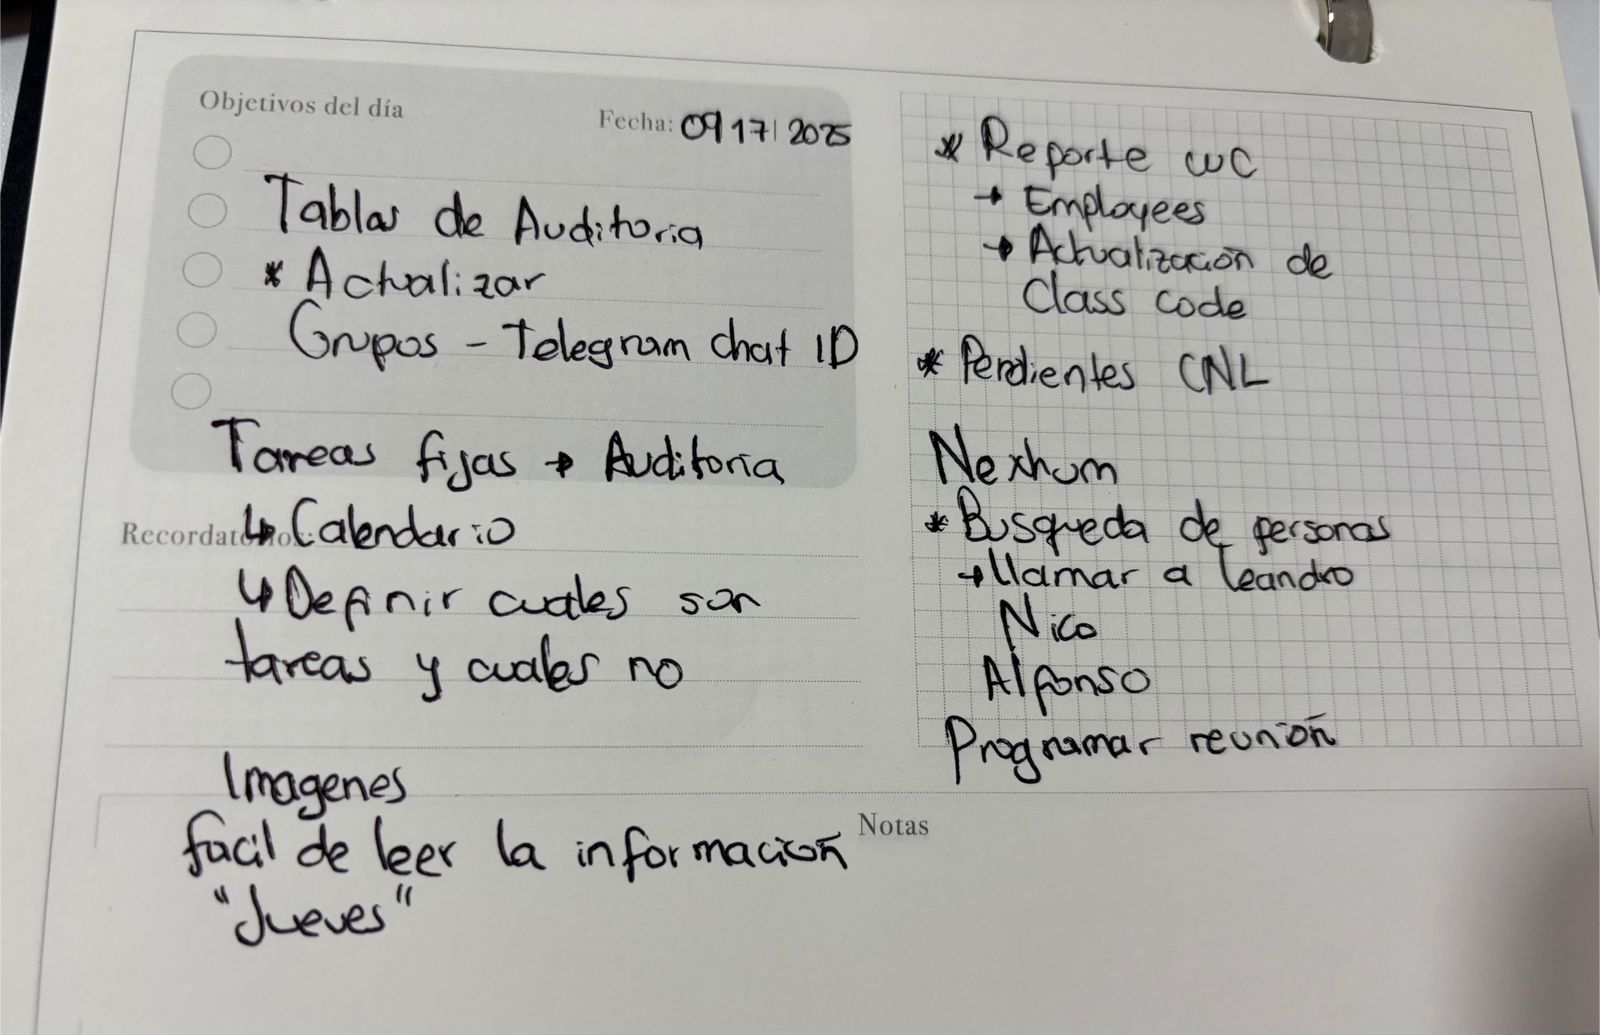 Objetivos del día
Fecha: 09/17/2025
Tablas de Auditoria
* Actualizar
Grupos - Telegram chat ID
Tareas fijas → Auditoria
Recordatorio
↳ Calendario
↳ Definir cuales son
tareas y cuales no
Imagenes
facil de leer la información
"Jueves"
* Reporte WC
→ Employees
→ Actualización de
Class code
* Pendientes CNL
Nexhum
* Busqueda de personas
→ llamar a leandro
Nico
Alfonso
Programar reunión
Notas